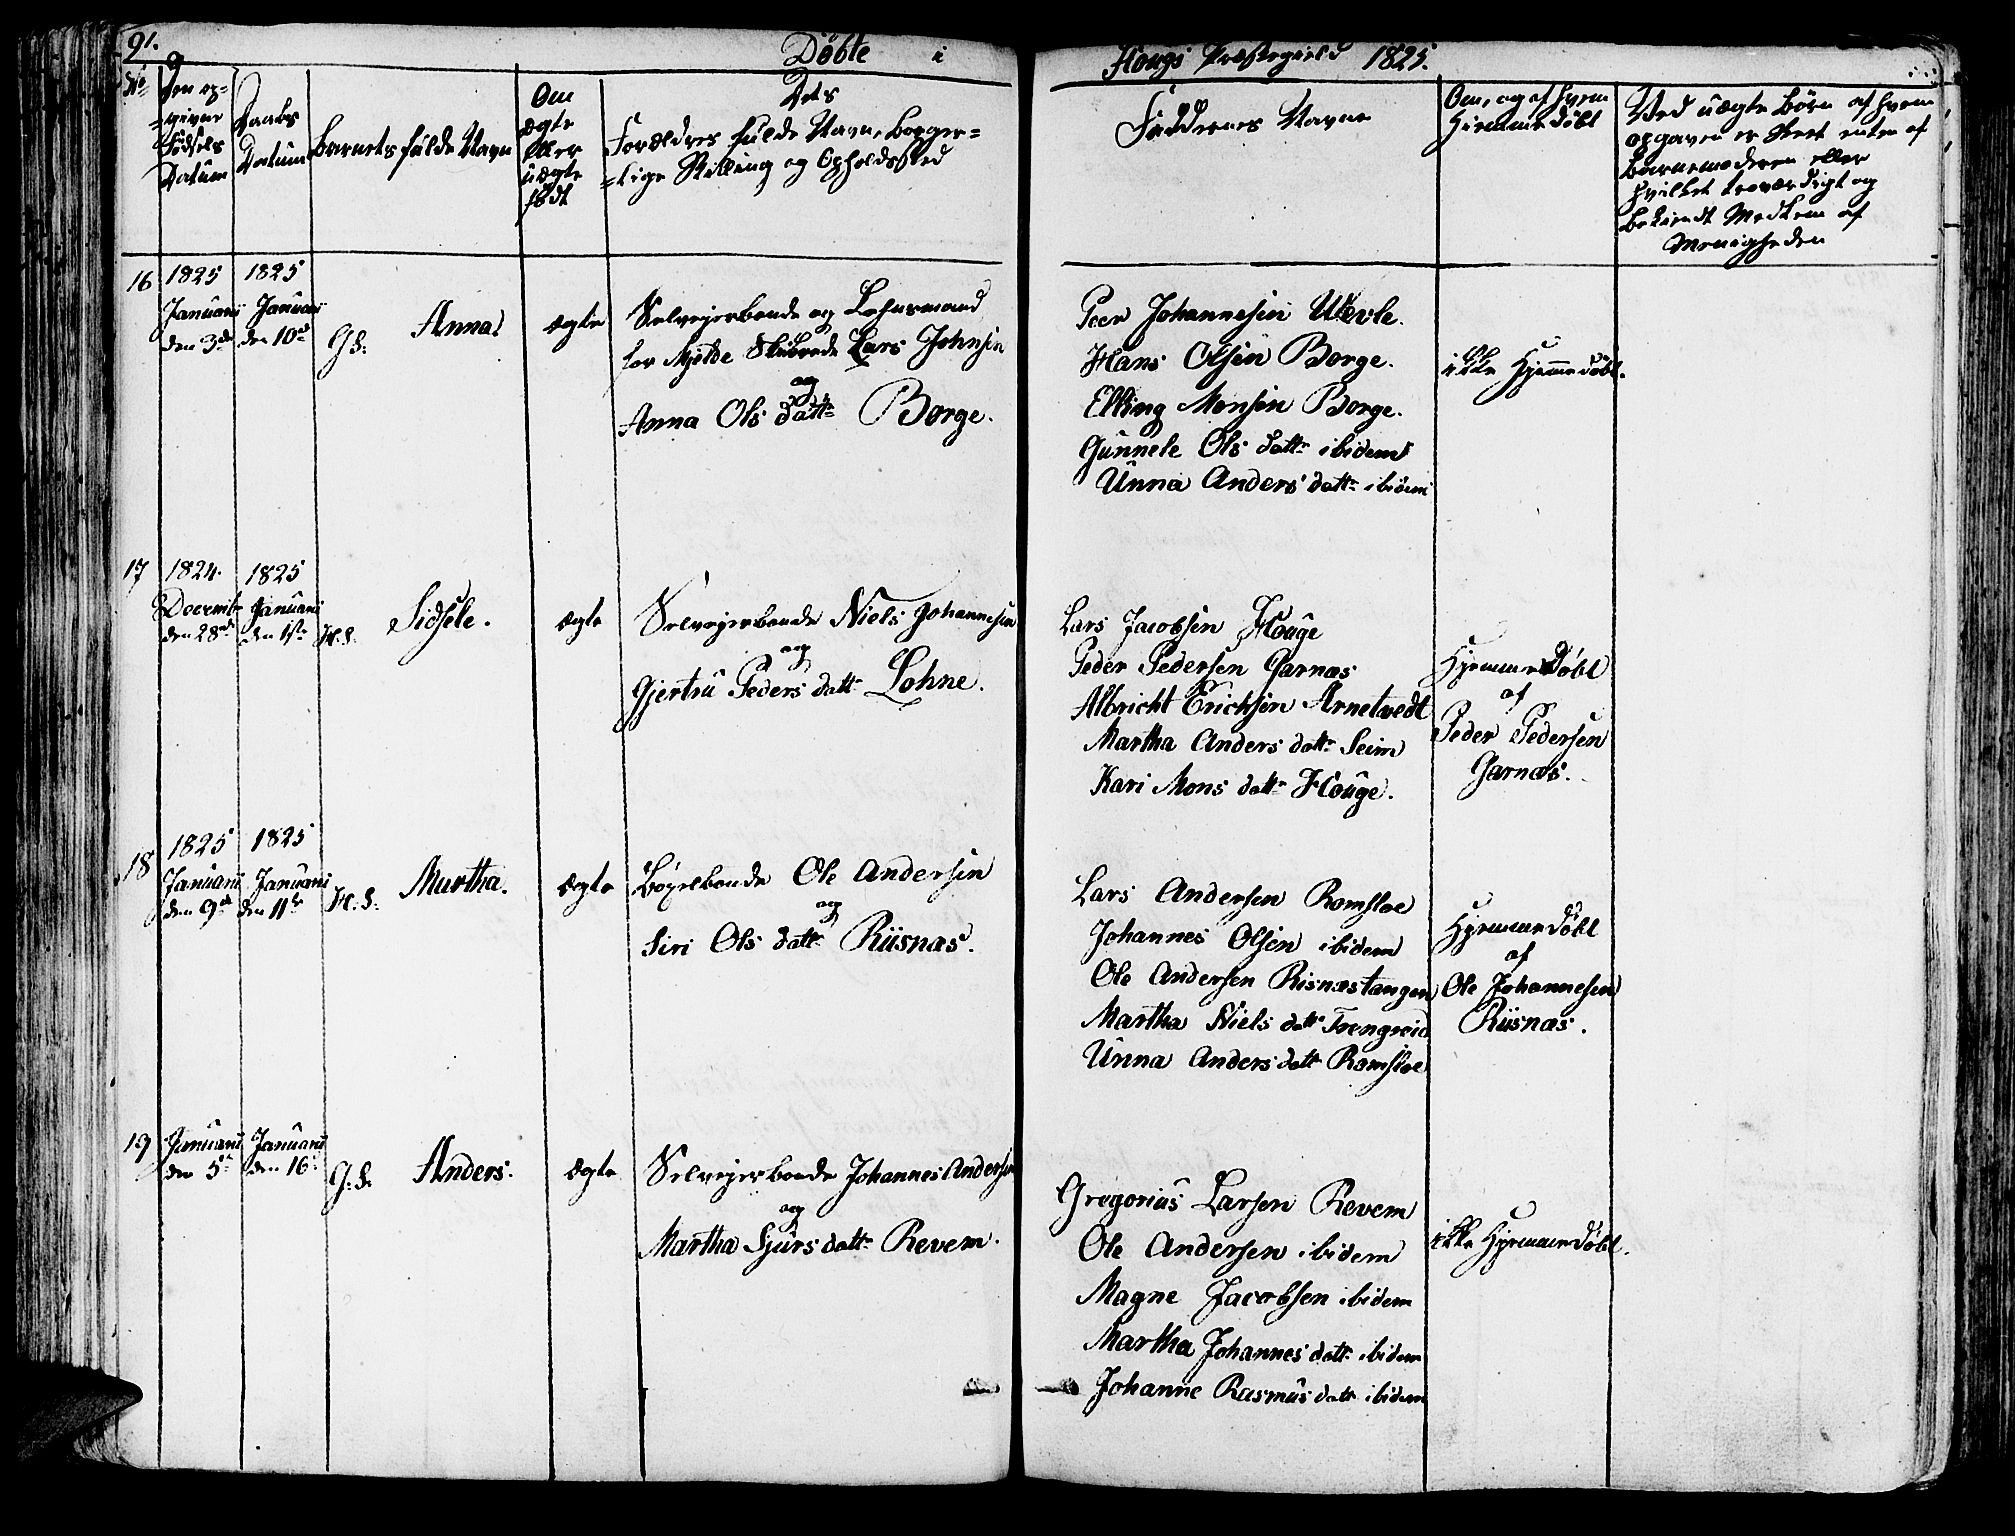 91.
Døbte i Hougs Præstegield 1825.
No
Den op=
=givne
Fødsels
Datum
Daabs
Datum
Barnets fulde Navn
Om
ægte
eller
uægte
født
Dets
Forældres fulde Navne, borger=
=lige Stilling og Opholdssted
Faddernes Navne
Om, og af hvem
Hiemmedøbt
Ved uægte Børn af hvem
opgaven er skeet enten af
Barnemoderen eller
hvilket troværdigt og
bekiendt Medlem af
Menigheden
16
1825
Januarii
den 3de
1825
Januarii
den 10d
G. d.
Anna
ægte
Selveierbonde og Lehnsmand
for Mjelde Skibrede Lars Johnsen
og
Anna Ols datt: Borge.
Peer Johannesen Wevle.
Hans Olsen Borge.
Elling Monsen Borge.
Gunnele Ols datt: ibidem
Unna Anders datt: ibidem
ikke Hjemmedøbt.
17
1824.
Decembr
den 28de
1825
Januarii
den 1ste
H. d.
Sidsele.
ægte
Selveierbonde Niels Johannesen
og
Gjertru Peders datt: Lohne.
Lars Jacobsen Houge
Peder Pedersen Garnæs
Albricht Erichsen Arnetvedt
Martha Anders datt: Seim
Kari Mons datt: Houge.
Hjemmedøbt
af
Peder Pedersen
Garnæs.
18
1825
Januarii
den 9de
1825
Januarii
den 11te
H. d.
Martha.
ægte
Bøyelbonde Ole Andersen
og
Siri Ols datt: Riisnæs.
Lars Andersen Romsloe
Johannes Olsen ibidem
Ole Andersen Risnæstangen
Martha Niels datt: Trengreid
Unna Anders datt: Romsloe
Hjemmedøbt
af
Ole Johannesen
Riisnæs.
19
Januarii
den 5te
Januarii
den 16
G. d.
Anders.
ægte
Selveierbonde Johannes Andersen
og
Martha Sjurs datt: Revem.
Gregorius Larsen Revem
Ole Andersen ibidem
Magne Jacobsen ibidem
Martha Johannes datt: ibidem
Johanne Rasmus datt: ibidem
ikke Hjemmedøbt.